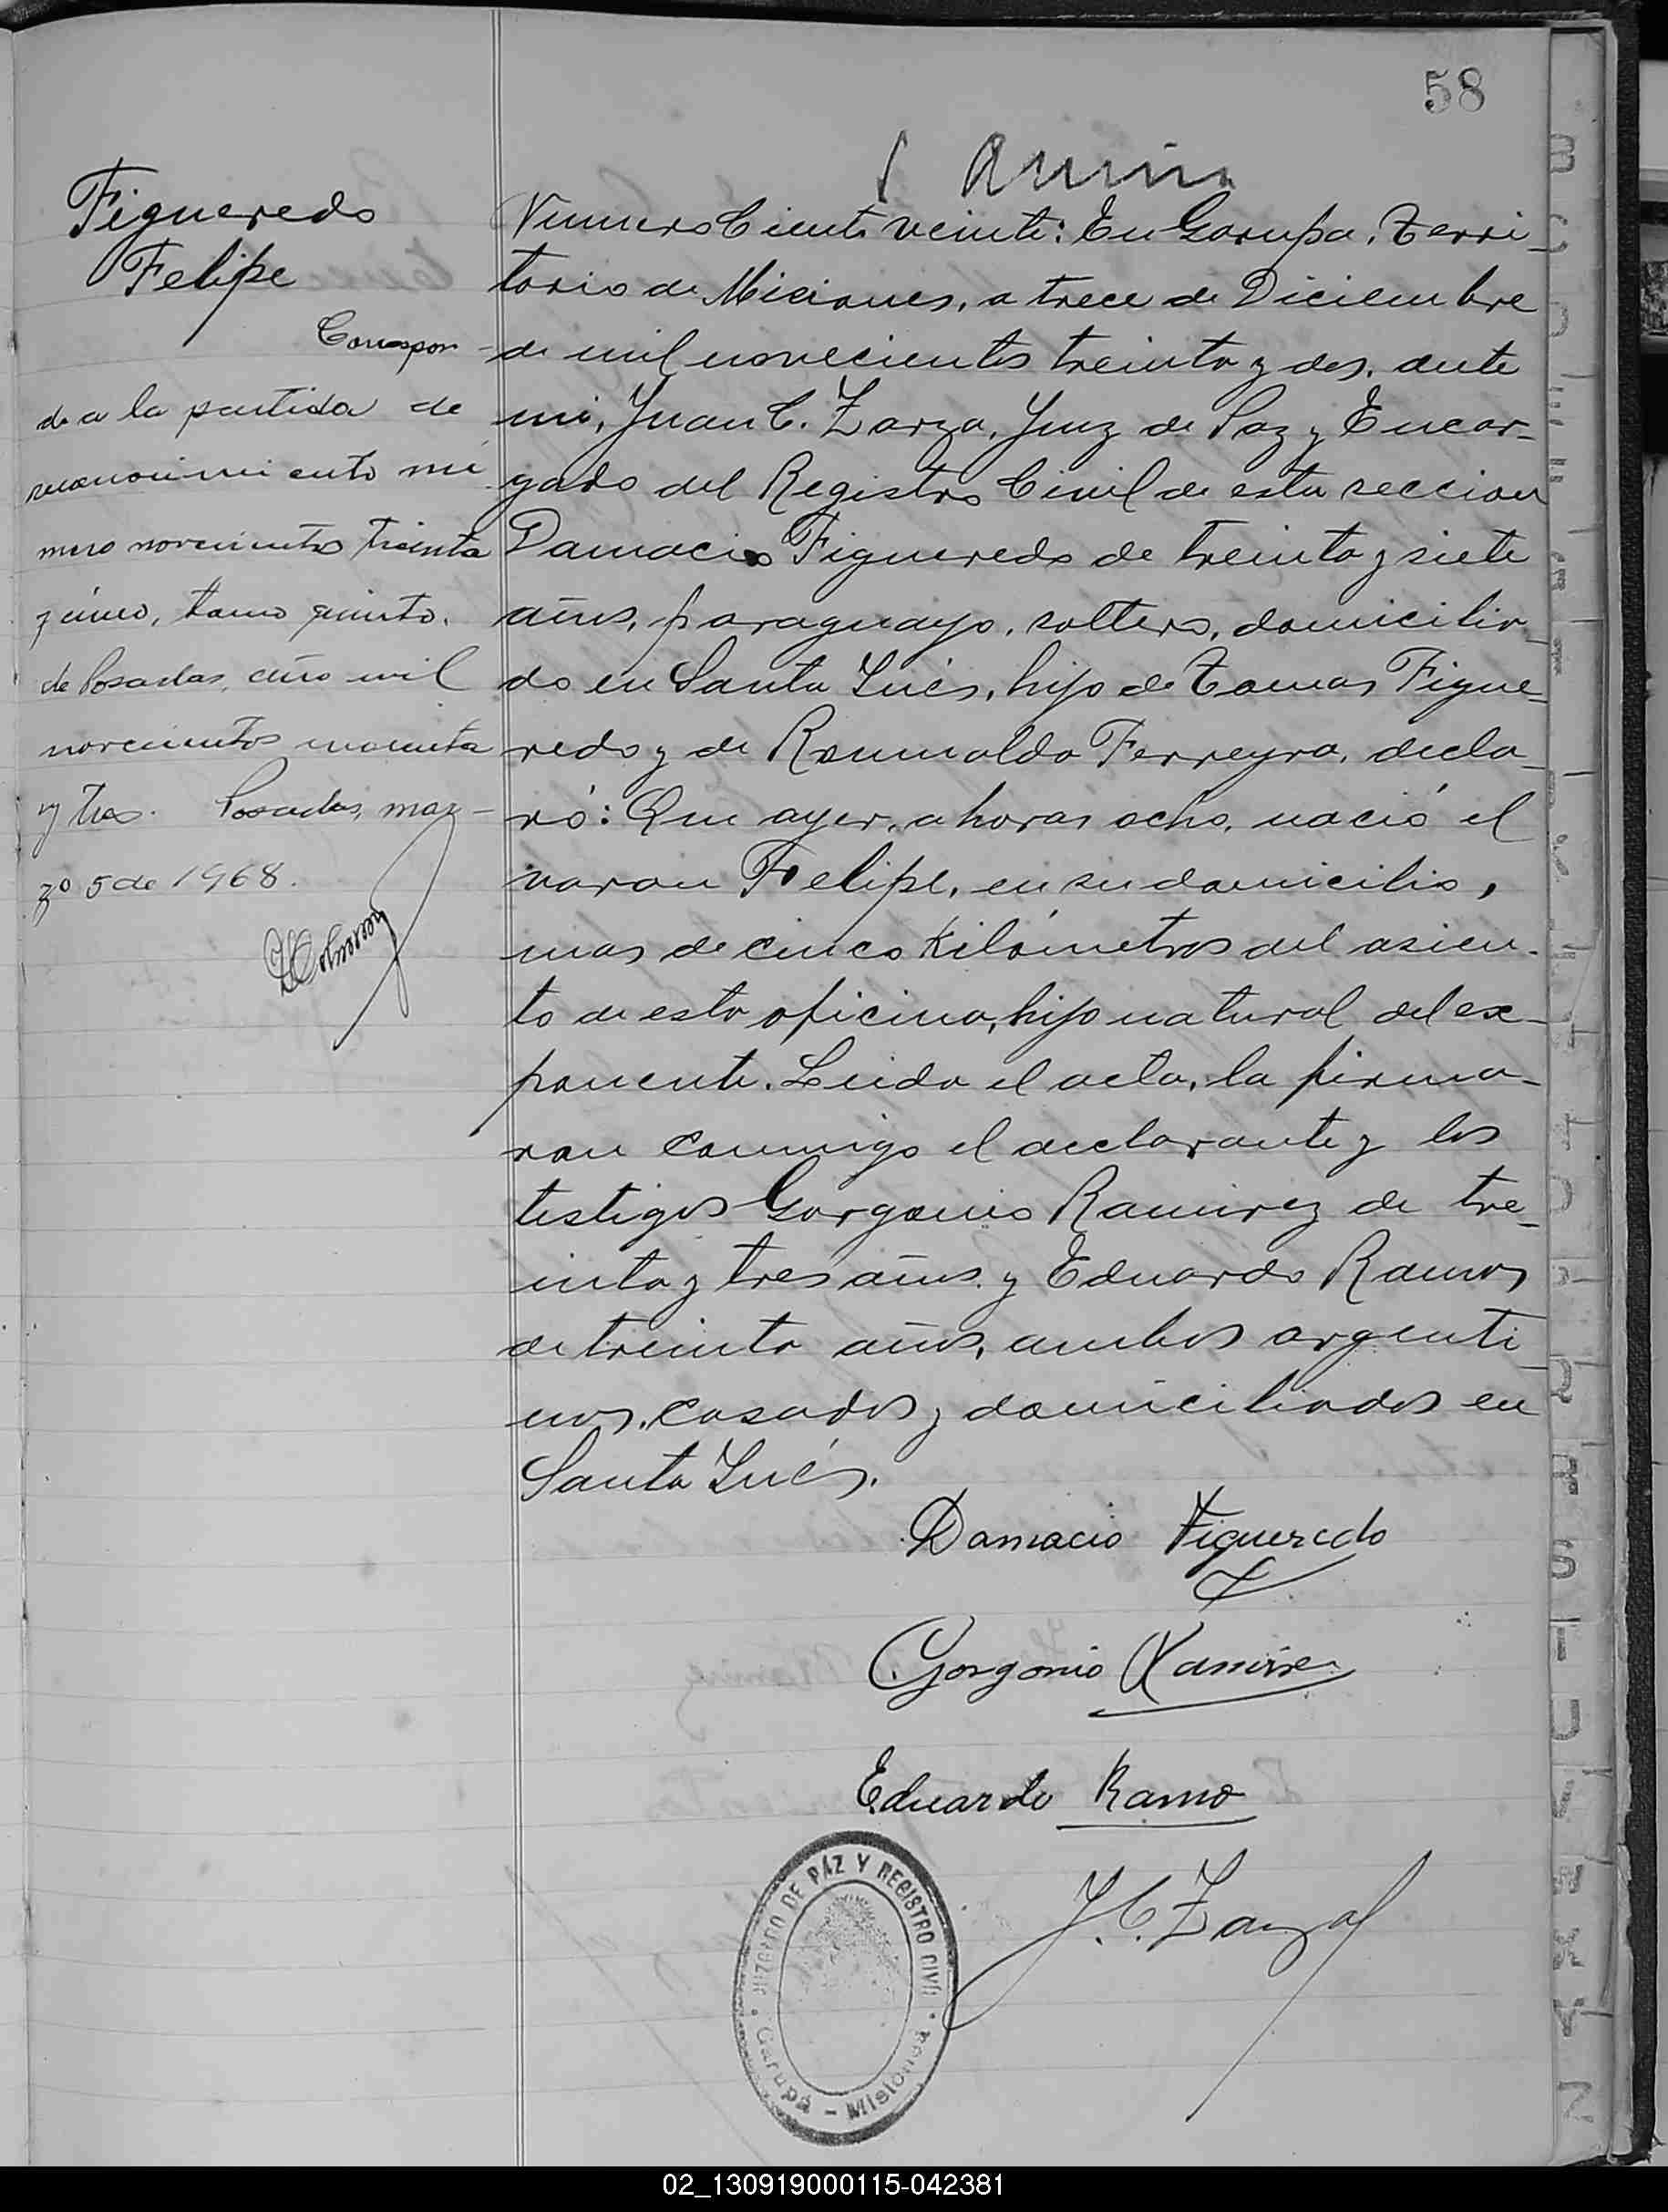 58
Figueredo
Felipe
Correspon-
de a la partida de
reconocimiento nú
mero novecientos treinta
y cinco, tomo quinto,
de Posadas, año mil
novecientos cincuenta
y tres. Posadas, mar-
zo 5 de 1968.
Numero Ciento veinte: En Garupa, Terri-
torio de Miciones, a trece de Diciembre
de mil novecientos treinta y dos, ante
mi, Juan C. Zarza, Juez de Paz y Encar-
gado del Registro Civil de esta seccion
Damacio Figueredo de treinta y siete
años, paraguayo, soltero, domicilia-
do en Santa Inés, hijo de Tomas Figue-
redo y de Romualda Ferreyra, decla-
ró: Que ayer, a horas ocho, nació el
varon Felipe, en su domicilio,
mas de cinco Kilómetros del asien-
to de esta oficina, hijo natural del ex-
ponente. Leida el acta, la firma-
ron conmigo el declarante y los
testigos Gorgonio Ramirez de tre-
inta y tres años y Eduardo Ramos
de treinta años, ambos argenti-
nos, casados y domiciliados en
Santa Inés.
Damacio Figueredo
Gorgonio Ramirez
Eduardo Ramo
J. C. Zarza
JUZGADO DE PAZ Y REGISTRO CIVIL
Garupá - Misiones
02_130919000115-042381